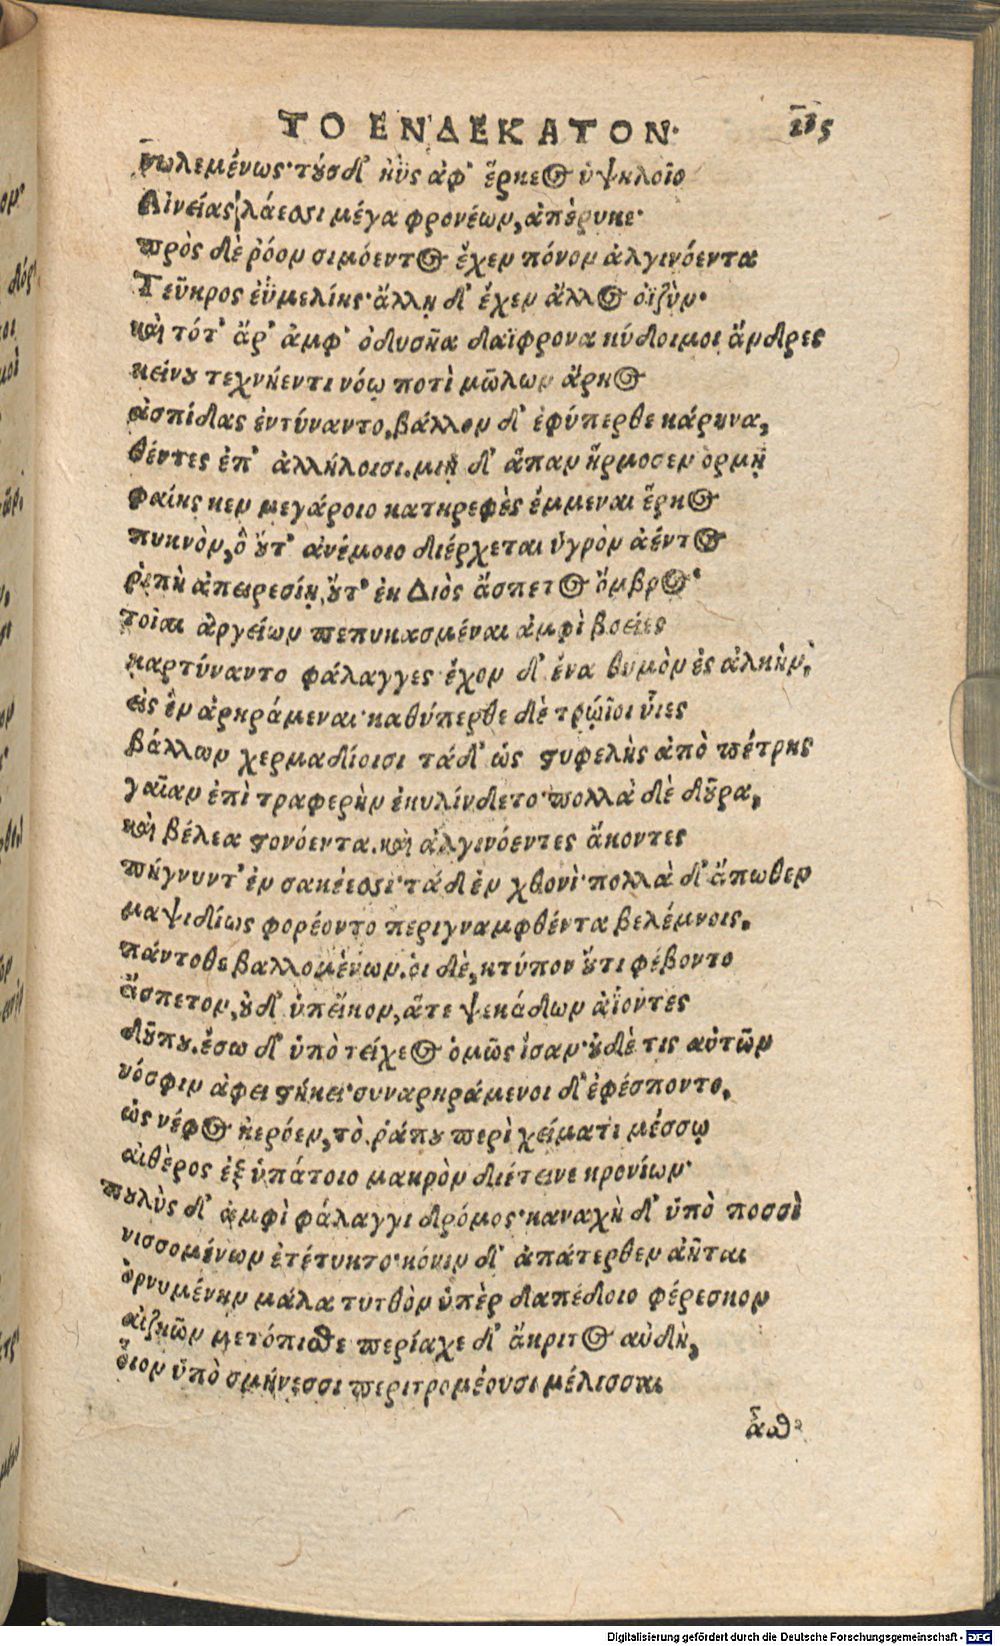 ΤΟ ΕΝΔΕΚΑΤΟΝ·
νωλεμένως· τούσδ' ἠῢς ἀφ' ἕρκεος ὑψηλοῖο
Αἰνείας λάεσσι μέγα φρονέων, ἀπέρυκε·
πρὸς δὲ ῥόον σιμόεντος ἔχεν πόνον ἀλγινόεντα
Τεῦκρος ἐϋμελίης· ἄλλη δ' ἔχεν ἄλλος ὀϊζὺν·
καὶ τότ' ἄρ' ἀμφ' ὀδυσῆα δαΐφρονα κύδοιμοι ἄνδρες
κείνου τεχνήεντι νόῳ ποτὶ μῶλων ἄρηος
ἀσπίδας ἐντύναντο, βάλλον δ' ἐφύπερθε κάρηνα,
θέντες ἐπ' ἀλλήλοισι. μιῇ δ' ἅπαν ἥρμοσεν ὁρμῇ
φαίης κεν μεγάροιο κατηρεφὲς ἔμμεναι ἕρκος
πυκνὸν, ὃ οὔτ' ἀνέμοιο διέρχεται ὑγρὸν ἀέντος
ῥιπὴ ἀπειρεσίη, οὔτ' ἐκ Διὸς ἄσπετος ὄμβρος·
τοῖαι ἀργείων πεπυκασμέναι ἀμφὶ βοείες
καρτύναντο φάλαγγες· ἔχον δ' ἕνα θυμὸν ἐς ἀλκὴν,
εἰς ἓν ἀρηράμεναι· καθύπερθε δὲ τρώϊοι υἷες
βάλλων χερμαδίοισι τάδ' ὡς στυφελῆς ἀπὸ πέτρης
γαῖαν ἐπὶ τραφερὴν ἐκυλίνδετο· πολλὰ δὲ δοῦρα,
καὶ βέλεα στονόεντα, καὶ ἀλγινόεντες ἄκοντες
πήγνυντ' ἐν σακέεσσι· τάδ ἐν χθονὶ· πολλὰ δ' ἄπωθεν
μαψιδίως φορέοντο περιγναμφθέντα βελέμνοις,
πάντοθε βαλλομένων, οἱ δὲ, κτύπον οὔτι φέβοντο
ἄσπετον, οὐδ' ὑπεῖκον, ἅτε ψεκάδων ἀΐοντες
δούπου. ἔσω δ' ὑπὸ τείχεος ὁμῶς ἴσαν· οὐδὲ τις αὐτῶν
νόσφιν ἀφειστήκει· συναρηράμενοι δ' ἐφέσποντο,
ὡς νέφος ἠερόεν, τὸ ῥάπου περὶ χείματι μέσσῳ
αἰθέρος ἐξ ὑπάτοιο μακρὸν διέτεινε κρονίων·
πουλὺς δ' ἀμφὶ φάλαγγι δρόμος· καναχὴ δ' ὑπὸ ποσσὶ
νισσομένων ἐτέτυκτο· κόνιν δ' ἀπάτερθεν ἀῆται
ὀρνυμένην μάλα τυτθὸν ὑπὲρ δαπέδοιο φέρεσκον
αἰζηῶν μετόπισθε περίαχε δ' ἄκριτος αὐδὴ,
οἷον ὑπὸ σμήνεσσι περιτρομέουσι μέλισσαι
ἆσθ
Digitalisierung gefördert durch die Deutsche Forschungsgemeinschaft - DFG